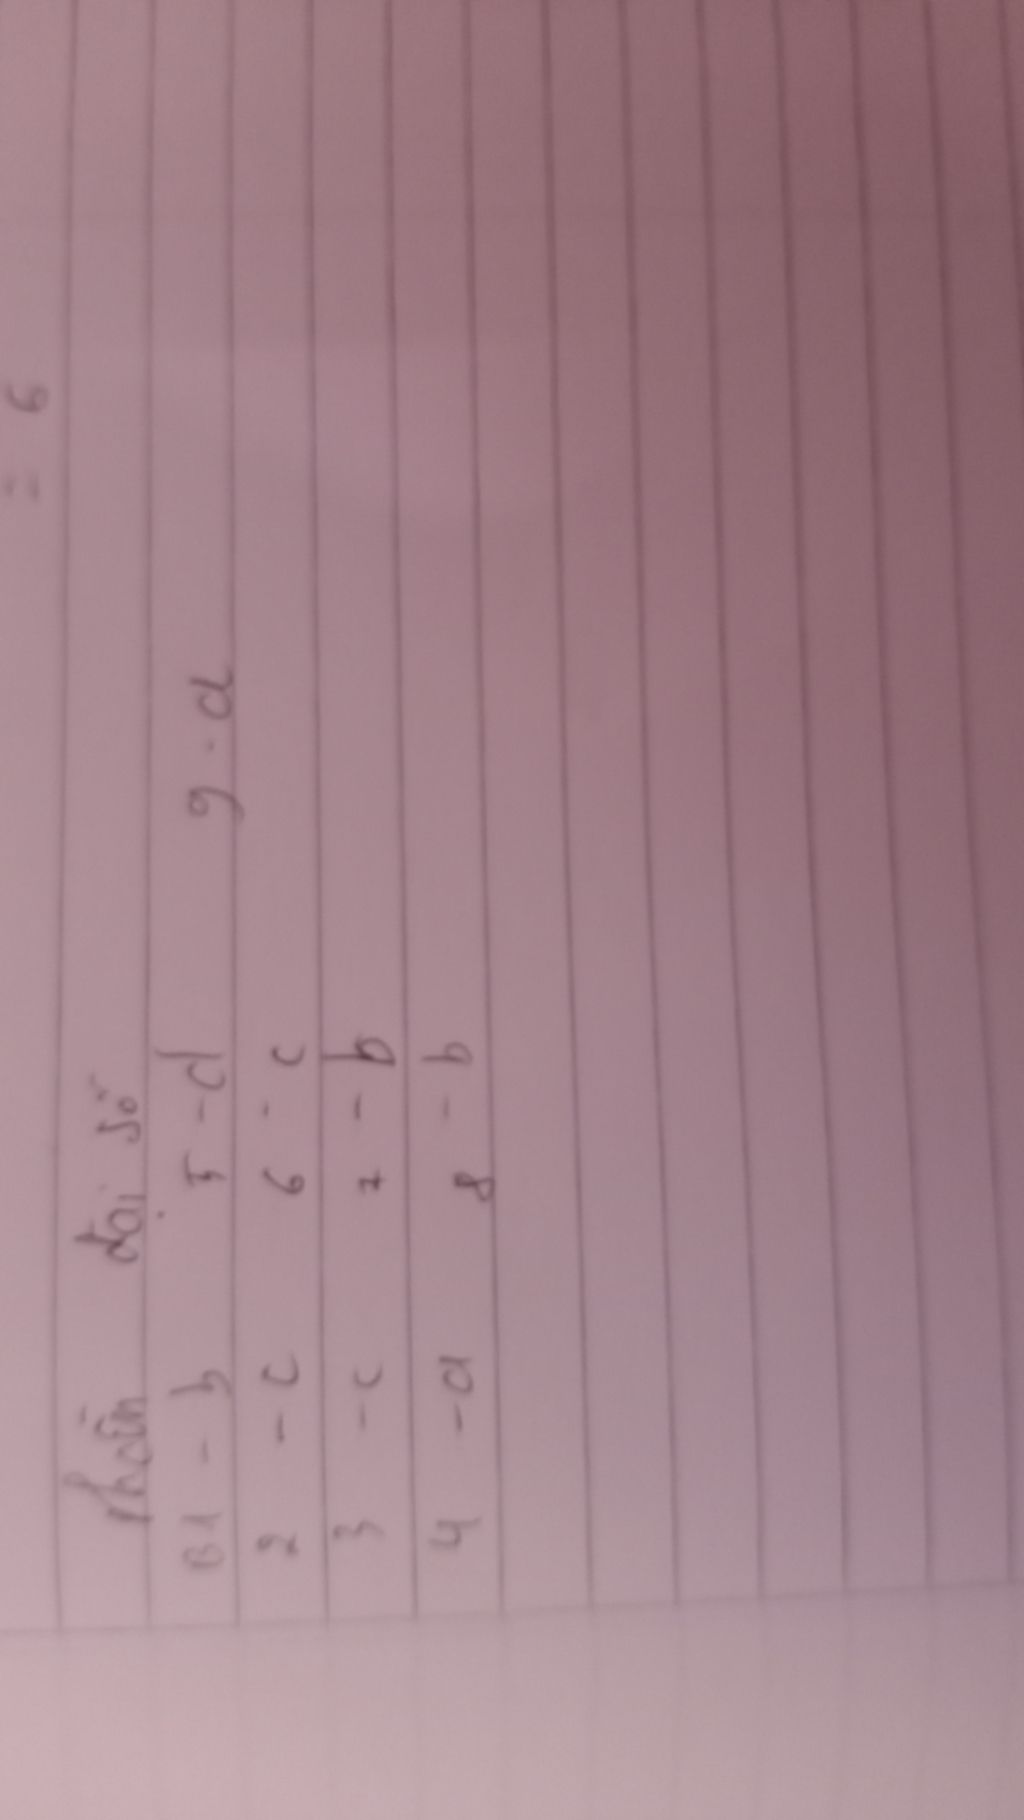 = 6
Phần đại số
B1 - b 5 - d 9 - d
2 - c 6 - c
3 - c 7 - b
4 - a 8 - b